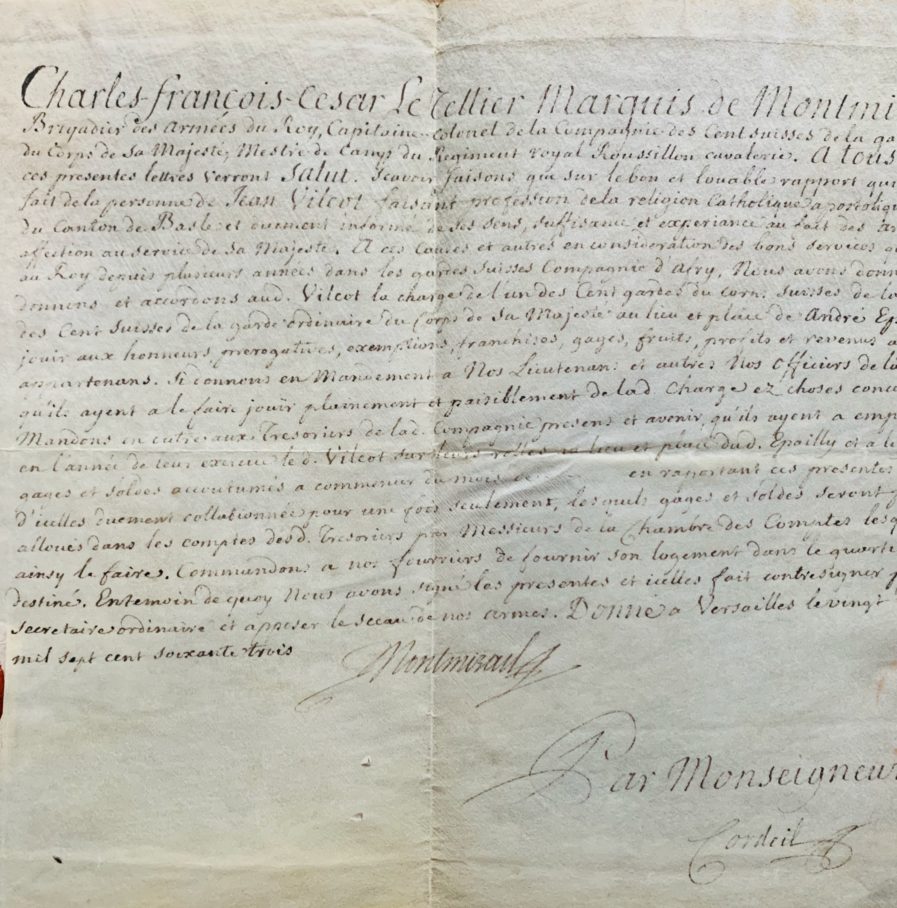 Charles-françois-Cesar Le Tellier Marquis de Montmi
Brigadier des Armées du Roy, Capitaine-Colonel de la Compagnie des Cent suisses de la ga
du Corps de Sa Majesté, Mestre de Camp du Regiment royal Roussillon cavalerie. A tous
ces presentes lettres verront Salut. Scavoir faisons que sur le bon et louable rapport qui
fait de la personne de Jean Vilcot faisant profession de la religion Catholique apostolique
du Canton de Basle et duement informé de ses sens, suffisance et experiance au fait des Ar
affection au service de Sa Majesté. A ces Causes et autres en consideration des bons services qu
au Roy depuis plusieurs années dans les gardes Suisses Compagnie d'Afry, Nous avons donn
donnons et accordons aud. Vilcot la charge de l'un des Cent gardes du corps suisses de la
des Cent Suisses de la garde ordinaire du Corps de Sa Majesté au lieu et place de André Ep
jouir aux honneurs, prerogatives, exemptions, franchises, gages, fruits, profits et revenus a
appartenans. Si donnons en Mandement a Nos Lieutenans et autres Nos Officiers de la
qu'ils ayent a le faire jouir plainement et paisiblement de lad. Charge ez choses conce
Mandons en outre aux Tresoriers de lad. Compagnie presens et avenir, qu'ils ayent a emp
en l'année de leur exercice led. Vilcot sur leurs rolles au lieu et place dud. Epailly et a le
gages et soldes accoutumés a commencer du mois de en raportant ces presentes
d'icelles duement collationnée pour une fois seulement, lesquels gages et soldes seront
alloués dans les comptes desd. Tresoriers par Messieurs de la Chambre des Comptes lesq
ainsy le faire. Commandons a nos fourriers de fournir son logement dans le quarti
destiné. En temoin de quoy Nous avons signé les presentes et icelles fait contresigner p
Secretaire ordinaire et apposer le sceau de nos armes. Donné a Versailles le vingt
mil sept cent soixante trois
Montmirail
Par Monseigneur
Cordeil